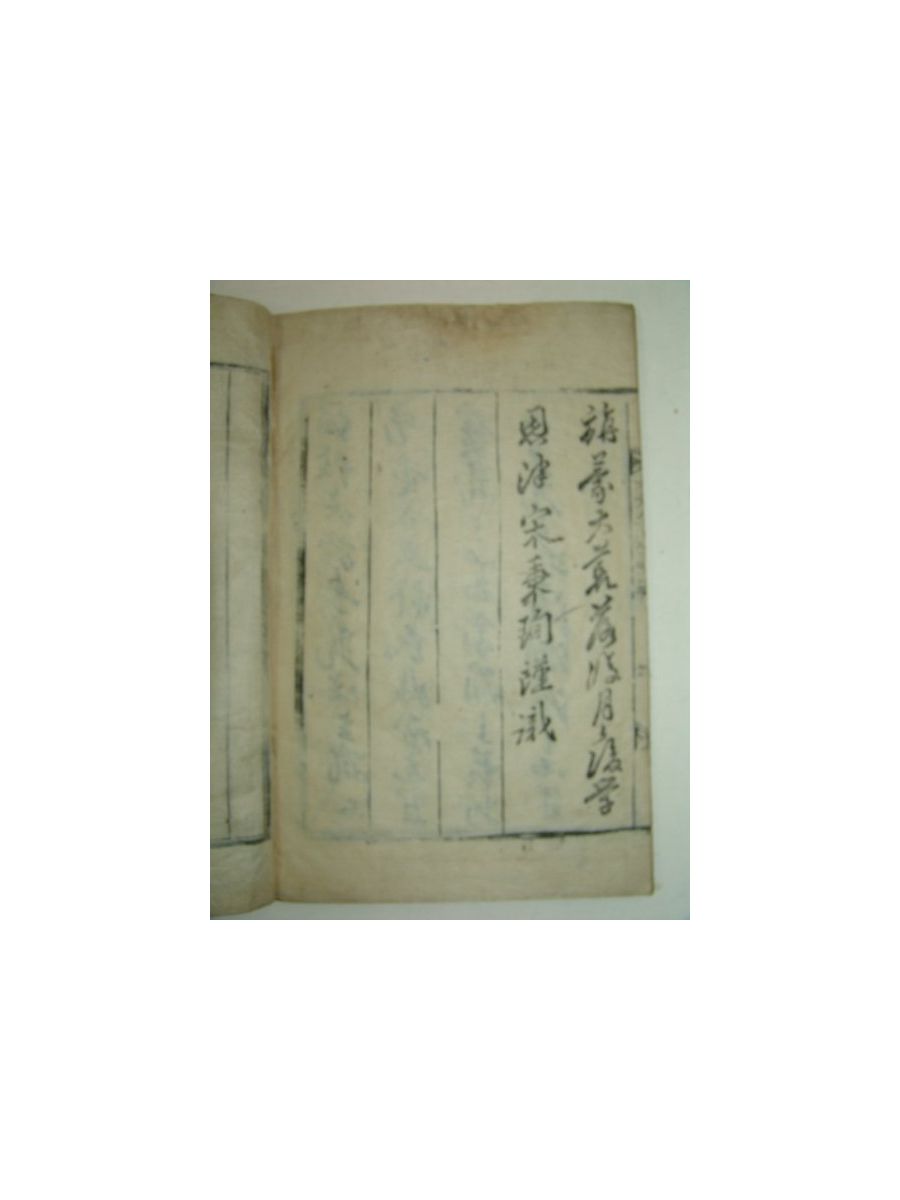 旃蒙大荒落陬月後学
恩津宋秉珣謹識